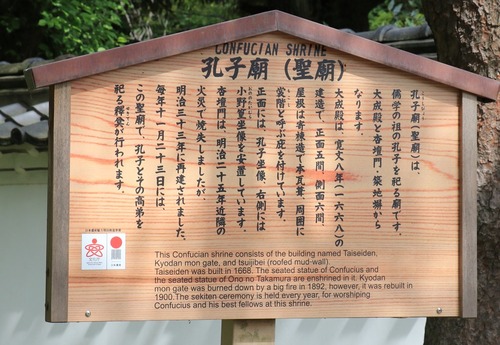 CONFUCIAN SHRINE
孔子廟（聖廟）
孔子廟（聖廟）は、
儒学の祖の孔子を祀る廟です。
大成殿と杏壇門・築地塀から
なります。
大成殿は、寛文八年（一六六八）の
建造で、正面五間、側面六間、
屋根は寄棟造で本瓦葺、周囲に
裳階と呼ぶ庇を付けています。
正面には、孔子坐像、右側には
小野篁坐像を安置しています。
杏壇門は、明治二十五年近隣の
火災で焼失しましたが、
明治三十三年に再建されました。
毎年十一月二十三日には、
この聖廟で、孔子とその高弟を
祀る釋奠が行われます。
This Confucian shrine consists of the building named Taiseiden,
Kyodan mon gate, and tsuijibei (roofed mud-wall).
Taiseiden was built in 1668. The seated statue of Confucius and
the seated statue of Ono no Takamura are enshrined in it. Kyodan
mon gate was burned down by a big fire in 1892, however, it was rebuilt in
1900.The sekiten ceremony is held every year, for worshiping
Confucius and his best fellows at this shrine.